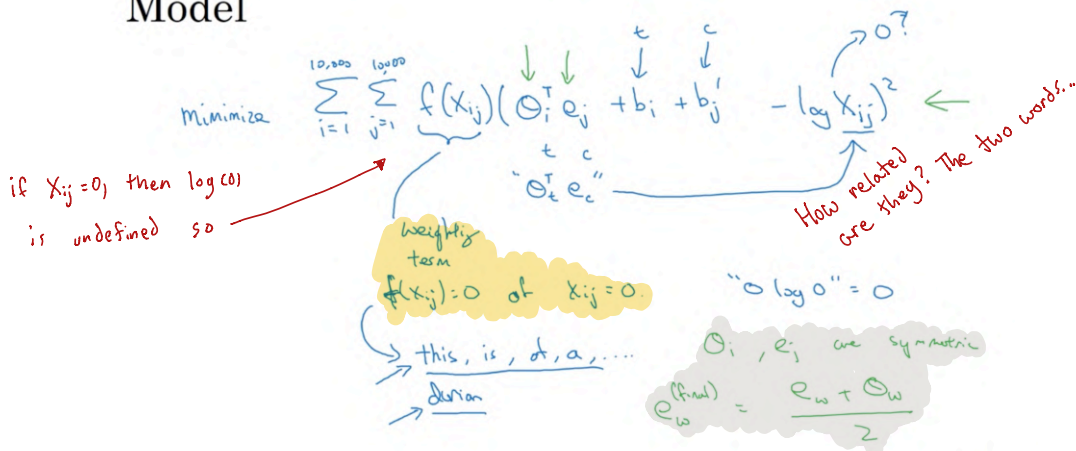 Model
minimize 10,000 Σ i=1 10,000 Σ j=1 f(Xij)(Θiᵀ ej + bi + bj' - log Xij)²
t c
0?
t c
"Θtᵀ ec"
if Xij = 0, then log(0)
is undefined so
How related
are they? The two words...
weighting
term
f(Xij)=0 if Xij = 0.
"0 log 0" = 0
this, is, of, a, ....
durian
Θi, ej are symmetric
ew(final) = ew + Θw / 2